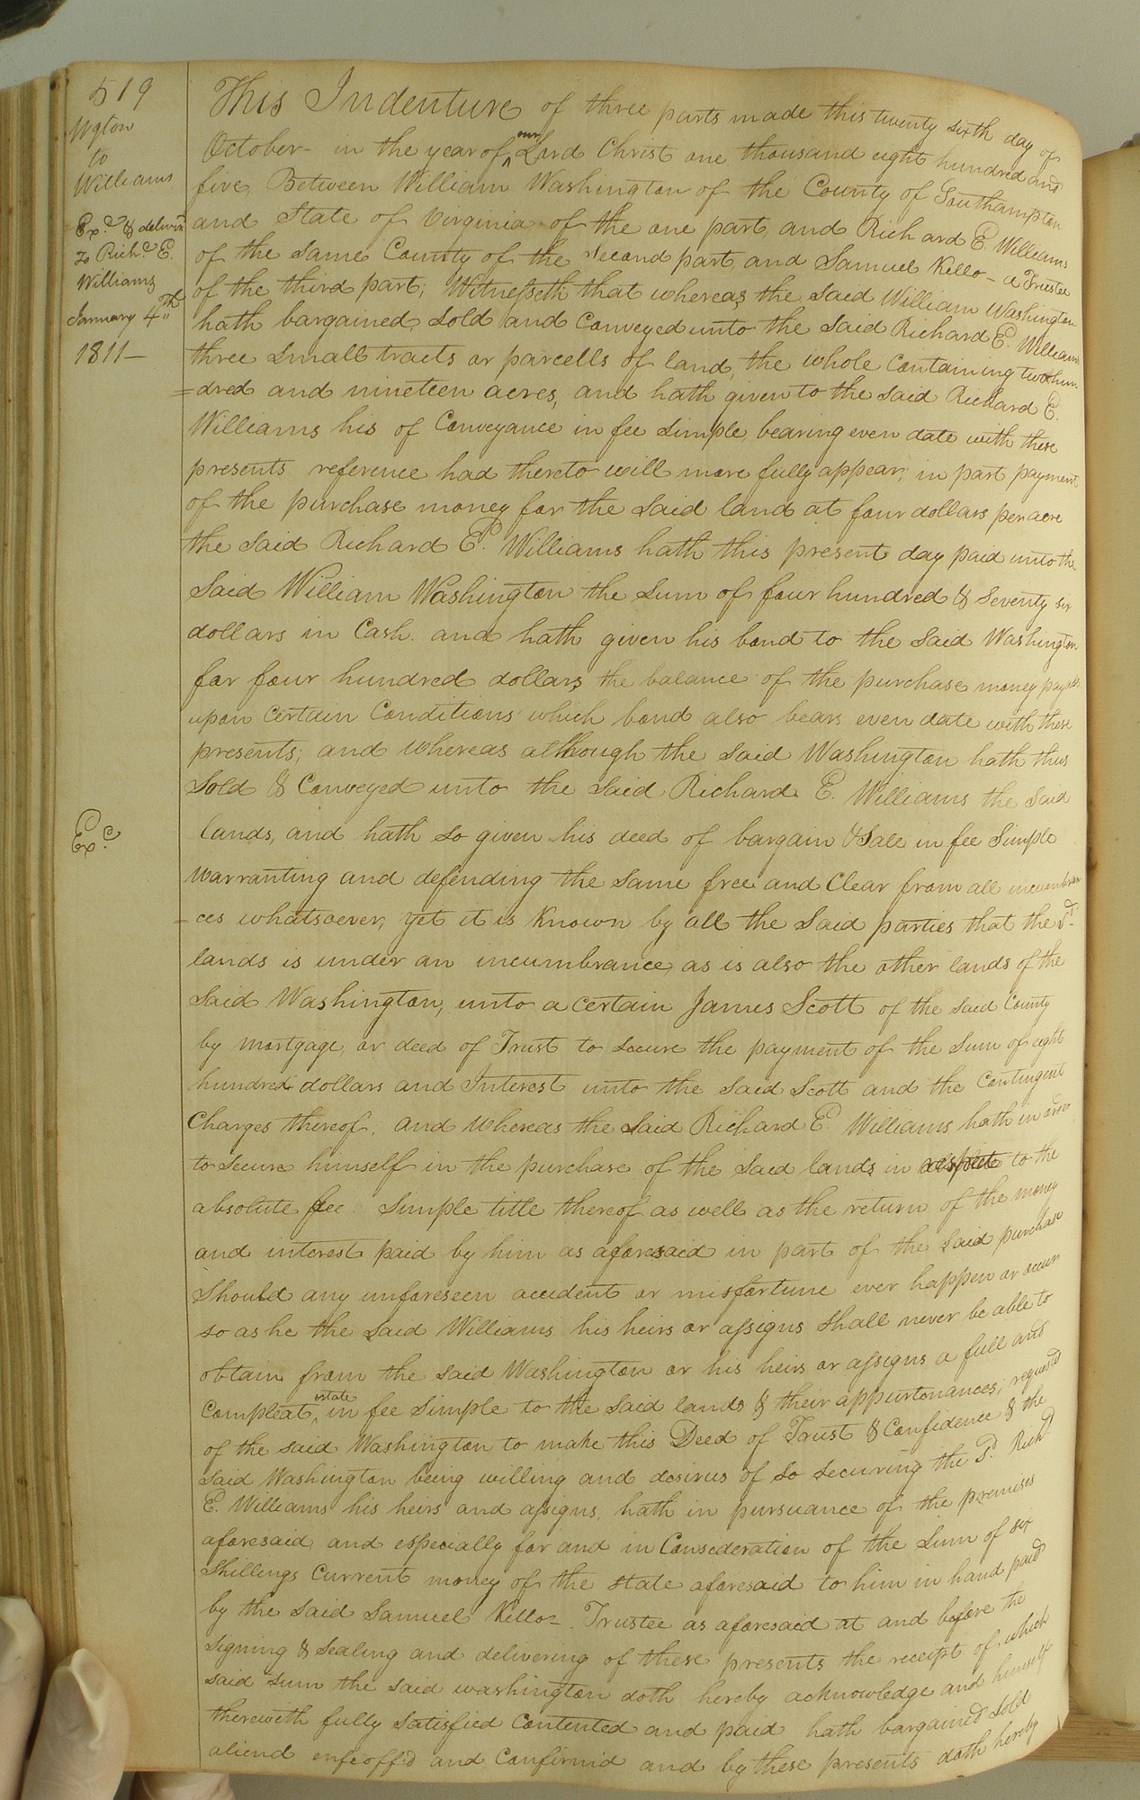 519
Wgton
to
Williams
Exd. & deliverd
to Richd. E.
Williams
January 4th
1811—
This Indenture of three parts made this twenty sixth day of
October - in the year of our Lord Christ one thousand eight hundred and
five Between William Washington of the County of Southampton
and State of Virginia of the one part and Richard E. Williams
of the Same County of the Second part and Samuel Kello - a Trustee
of the third part; Witnesseth that whereas the Said William Washington
hath bargained Sold and Conveyed unto the Said Richard E. Williams
three Small tracts or parcells of land, the whole Containing two hun
=dred and nineteen acres, and hath given to the said Richard E.
Williams his of Conveyance in fee Simple bearing even date with these
presents reference had thereto will more fully appear; in part payment
of the purchase money for the Said land at four dollars per acre
the Said Richard E. Williams hath this present day paid unto the
Said William Washington the Sum of four hundred & Seventy six
dollars in Cash. and hath given his bond to the Said Washington
for four hundred dollars the balance of the purchase money payable
upon Certain Conditions which bond also bears even date with these
presents; and whereas although the Said Washington hath thus
Sold & Conveyed unto the Said Richard E. Williams the Said
lands, and hath So given his deed of bargain & Sale in fee Simple
Warranting and defending the Same free and Clear from all incumbran
-ces whatsoever, yet it is Known by all the Said parties that the Sd.
lands is under an incumbrance as is also the other lands of the
Said Washington, unto a certain James Scott of the said County
by mortgage or deed of Trust to Secure the payment of the Sum of eight
hundred dollars and Interest unto the Said Scott and the Contingent
Charges thereof. and Whereas the Said Richard E. Williams hath in order
to Secure himself in the purchase of the Said lands in respect to the
absolute fee Simple title thereof as well as the return of the money
and interest paid by him as aforesaid in part of the Said purchase
Should any unforeseen accident or misfortune ever happen or occur
so as he the Said Williams his heirs or assigns Shall never be able to
obtain from the said Washington or his heirs or assigns a full and
Compleat estate in fee Simple to the Said lands & their appurtonances; requested
of the said Washington to make this Deed of Trust & Confidence & the
Said Washington being willing and desirus of So Securing the Sd. Richd
E. Williams his heirs and assigns, hath in pursuance of the premises
aforesaid and especially for and in Consederation of the Sum of six
Shillings Current money of the State aforesaid to him in hand paid
by the Said Samuel Kello - Trustee as aforesaid at and before the
Signing & Sealing and delivering of these presents the receipt of which
said sum the said washington doth hereby acknowledge and himself
therewith fully Satisfied Contented and paid hath bargained Sold
aliend enfeoffd and Confirmd and by these presents doth hereby
Exd.